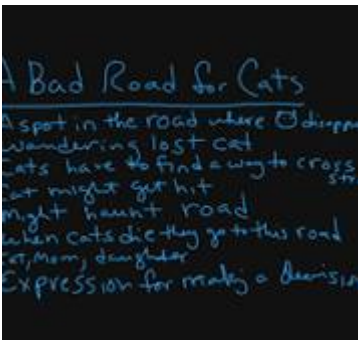 A Bad Road for Cats
A spot in the road where disappe
wandering lost cat
Cats have to find a way to cross
Cat might get hit
might haunt road
when cats die they go to this road
cat, Mom, daughter
Expression for making a Decision